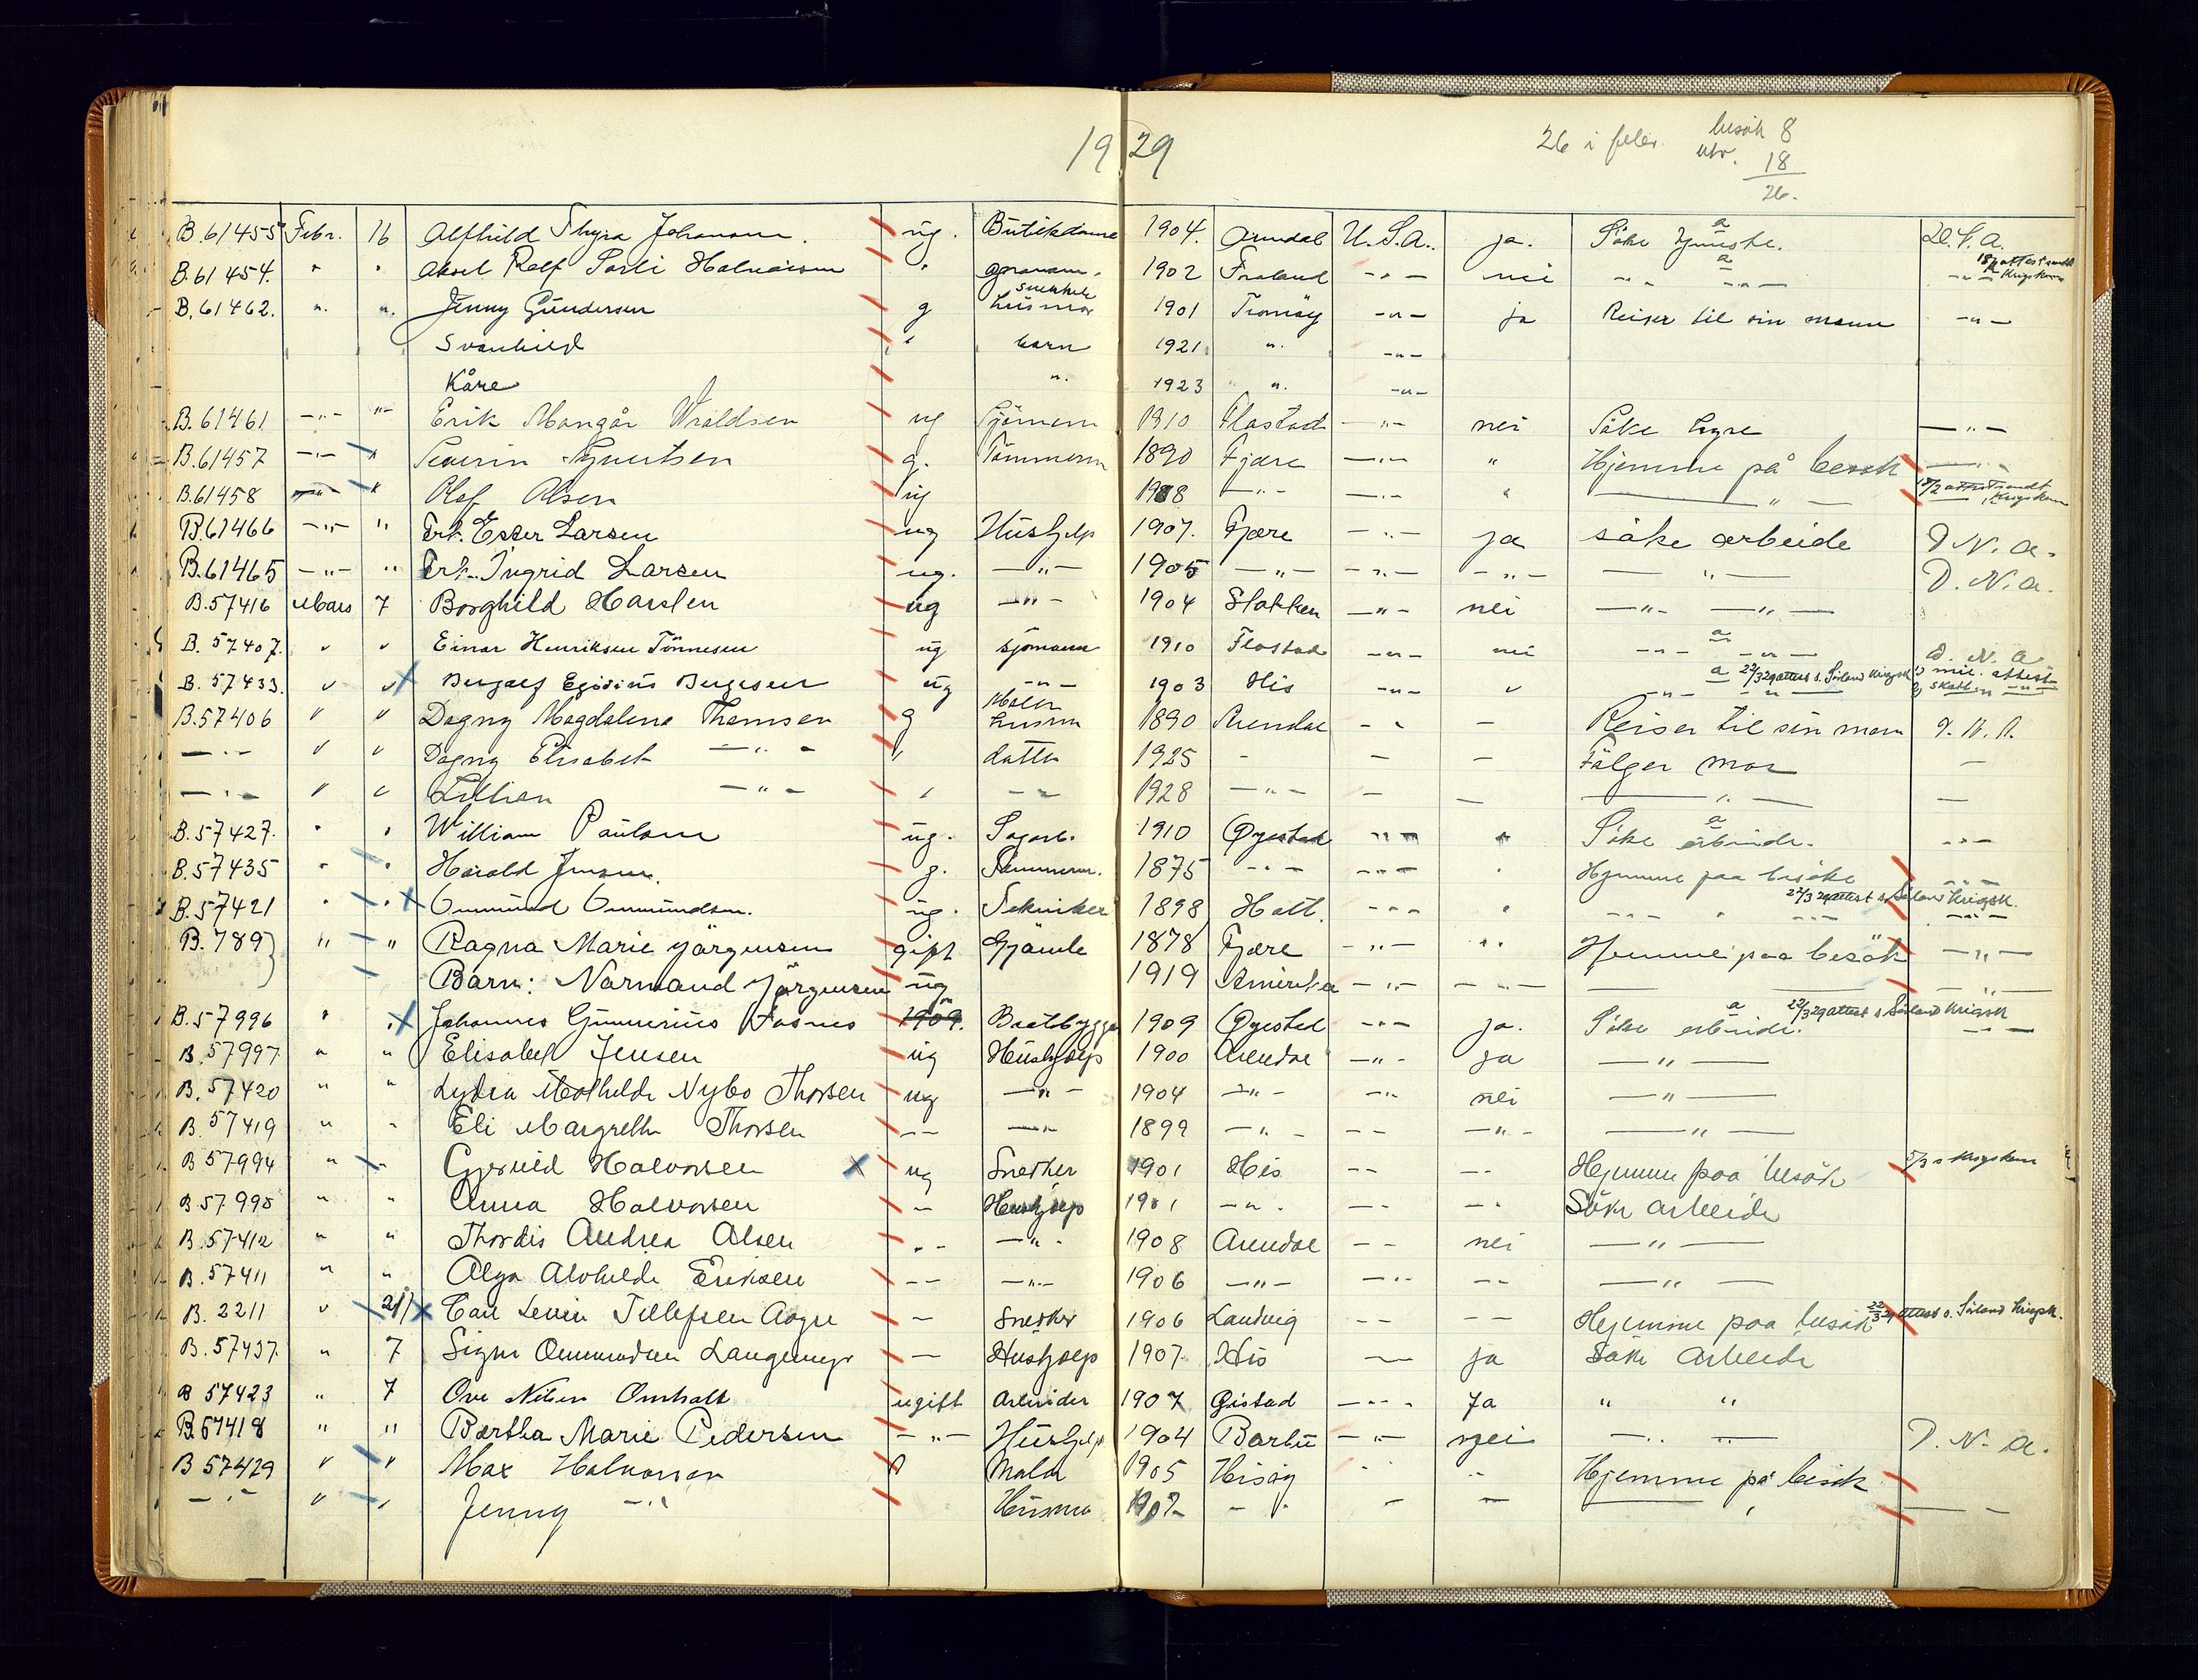 1929
26 i febr. besök 8
utv. 18
26.
B.61455 Febr. 16 Alfhild Thyra Johansen. ug. Butikdame 1904. Arendal U.S.A. ja. Söke tjeneste. a D. N. A.
B.61454. " " Aksel Rolf Halvorsen " 1902 Froland -"- nei -"- a -"- 18/2 attest sendt Krigskom
B.61462. " " Jenny Gundersen g husmor 1901 Tromöy -"- ja Reiser til sin mann -"-
Svanhild " barn 1921 " -"-
Kåre " 1923 " -"-
B.61461 -"- "- Erik Mangår Vroldsen ug Sjömann 1910 Flostad -"- nei Söke hyre -"-
B.61457 -"- " Severin Syvertsen g. Tömmerm 1890 Fjære -"- " Hjemme på besök -"-
B.61458 -"- " Olaf Olsen ug 1908 -"- -"- " -"- 18/2 attest sendt Krigskom
B.61466 -"- " Frk. Ester Larsen ug Hushjelp 1907. Fjære -"- ja söke arbeide D. N. A.
B.61465 -"- " Frk. Ingrid Larsen ug. -"- 1905 -"- -"- -"- -"- D. N. A.
B.57416 Mars 7 Borghild Harsten ug -"- 1904 Stokken -"- nei -"- -"-
B.57407. " " Einar Henriksen Tönnesen ug sjömann 1910 Flostad -"- nei -"- a -"- D. N. A
B.57433. " " Bergulf Egidius Bergesen ug -"- 1903 His -"- " -"- a -"- 22/3 29 attest s. Sörland Krigsk 1) mil. attest 2) skatten -"-
B.57406 " " Dagny Magdalene Thomsen g Husmor 1890 Arendal -"- - Reiser til sin man D. N. A.
-"- " " Dagny Elisabet -"- " datter 1925 - - - Fölger mor -
-"- " " Lillian -"- " -"- 1928 -"- - - -"- -
B.57427. " " William Paulsen ug. Sagarb. 1910 Øyestad -"- " Söke arbeide. a -"-
B.57435 " " Harald Jensen. g. Tömmerm. 1875 -"- -"- " Hjemme paa besöke -"-
B.57421 " " Gunmund Gunmundsen. ug. Tekniker 1898 Holt. -"- " -"- " -"- 22/3 29 attest s Sörland Krigsk. -"-
B.789 " " Ragna Marie Jörgensen gift Hjemme 1878 Fjære -"- " Hjemme paa besök -"-
Barn: Normand Jörgensen ug 1919 Amerika -"- -"- -"-
B.57996 " " Johannes Gunnerius Fosnes 1909. Baatbygger 1909 Øyestad -"- ja. Söke arbeide. a 22/3 29 attest s Sörland Krigsk -"-
B.57997 " " Elisabet Jensen ug Hushjelp 1900 Arendal -"- ja -"-
B.57420 " " Lydia Mathilde Nybo Thorsen ug -"- 1904 -"- -"- nei -"-
B.57419 " " Eli Margrethe Thorsen -"- -"- 1899 -"- -"- -"- -"-
B 57994 " " Halvorsen ug Snekker 1901 His -"- -"- Hjemme paa besök Krigskom
B.57995 " " Anna Halvorsen - Hushjelp 1901 -"- -"- -"- Söke arbeide
B.57412 " " Thordis Andrea Olsen -"- -"- 1908 Arendal -"- nei -"-
B.57411 " " Alga Alvhilde Eriksen -"- -"- 1906 -"- -"- -"- -"-
B.2211 " 21/ Carl Levin Tellefsen Aagre - Snekker 1906 Landvig -"- -"- Hjemme paa besök 22/3 29 attest s. Sörland Krigsk.
B.57437 " 7 Signe Ommundsen Langemyr - Hushjelp 1907 His - ja Söke Arbeide
B 57423 " 7 Ove Nilsen Omholt ugift Arbeider 1907 Öistad -"- Ja " "
B.57418 " " Bertha Marie Pedersen -"- Hushjelp 1904 Barbu -"- nei -"- -"- D. N. A.
B 57429 " " Max Halvorsen g Maler 1905 Hisöy " " Hjemme på besök
-"- " " Jenny -"- Husmor 1907 -"- - - -"- -"-